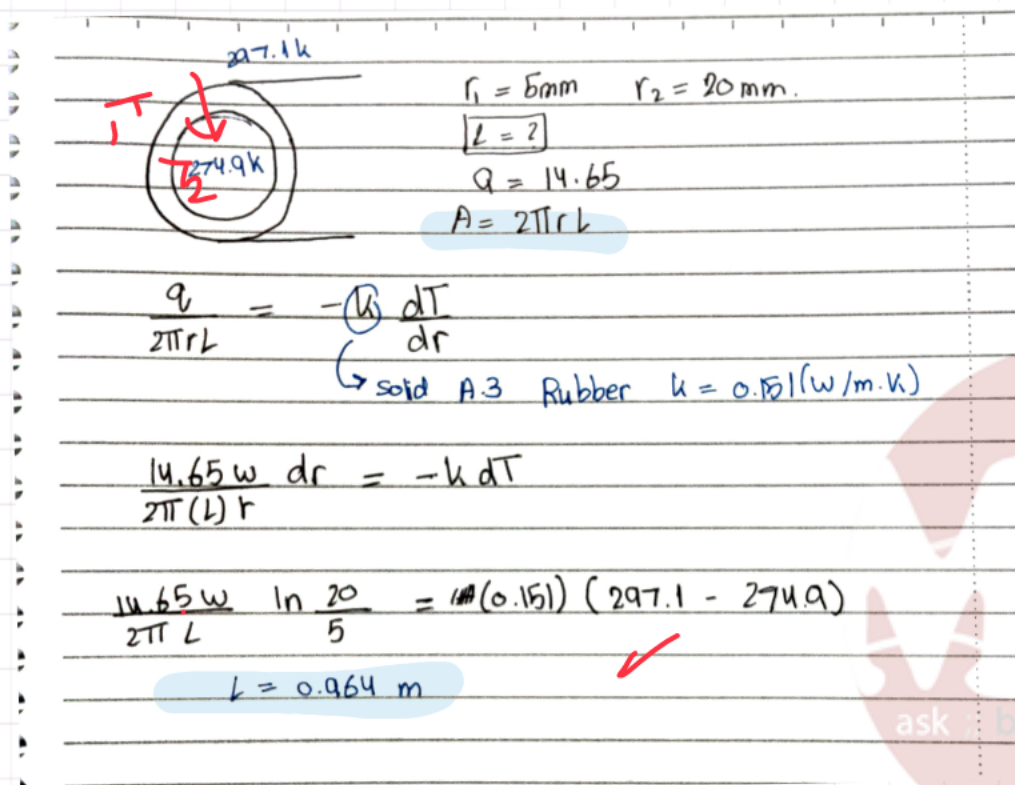 297.1k
T1
274.9k
T2
r₁ = 5mm r₂ = 20mm.
L = ?
Q = 14.65
A = 2πrL
q/2πrL = -k dT/dr
solid A.3 Rubber k = 0.151(W/m.K)
14.65 w/2π(L) r dr = -k dT
14.65 w/2π L ln 20/5 = (0.151) (297.1 - 274.9)
L = 0.964 m
ask
b